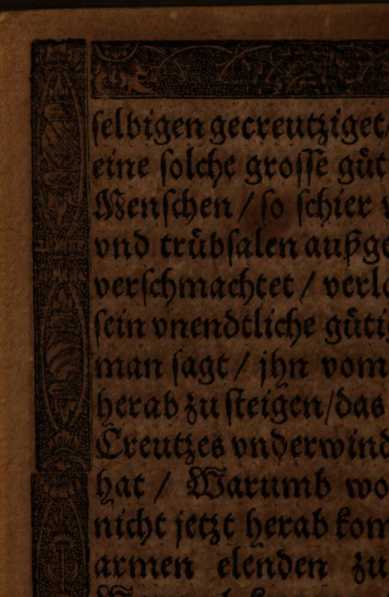 selbigen gecreutziget
eine solche grosse güt
Menschen / so schier
vnd trübsalen außge
verschmachtet / verl
sein vnendtliche güti
man sagt / jhn vom
herab zu steigen / das
Creutzes vnderwind
hat / Warumb wo
nicht jetzt herab kom
armen elenden zu